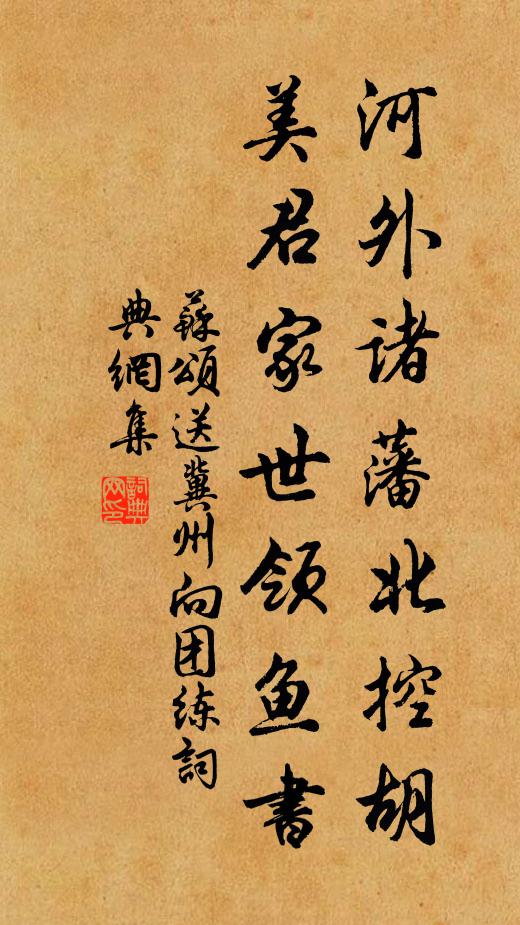 河外诸藩北控胡
美君家世领鱼書
蘇頌送冀州向团练詞
典網集
詞典網印